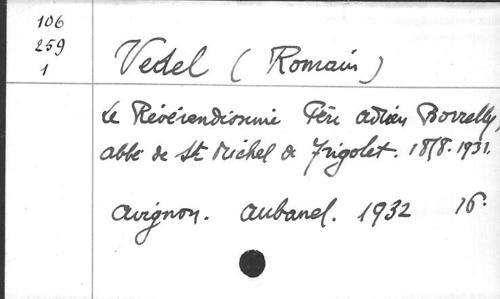 106
259
1
Vedel (Romain)
Le Révérendissime Père Adrien Borrelly,
abbé de St Michel de Frigolet. 1858-1931.
Avignon. Aubanel. 1932 16°